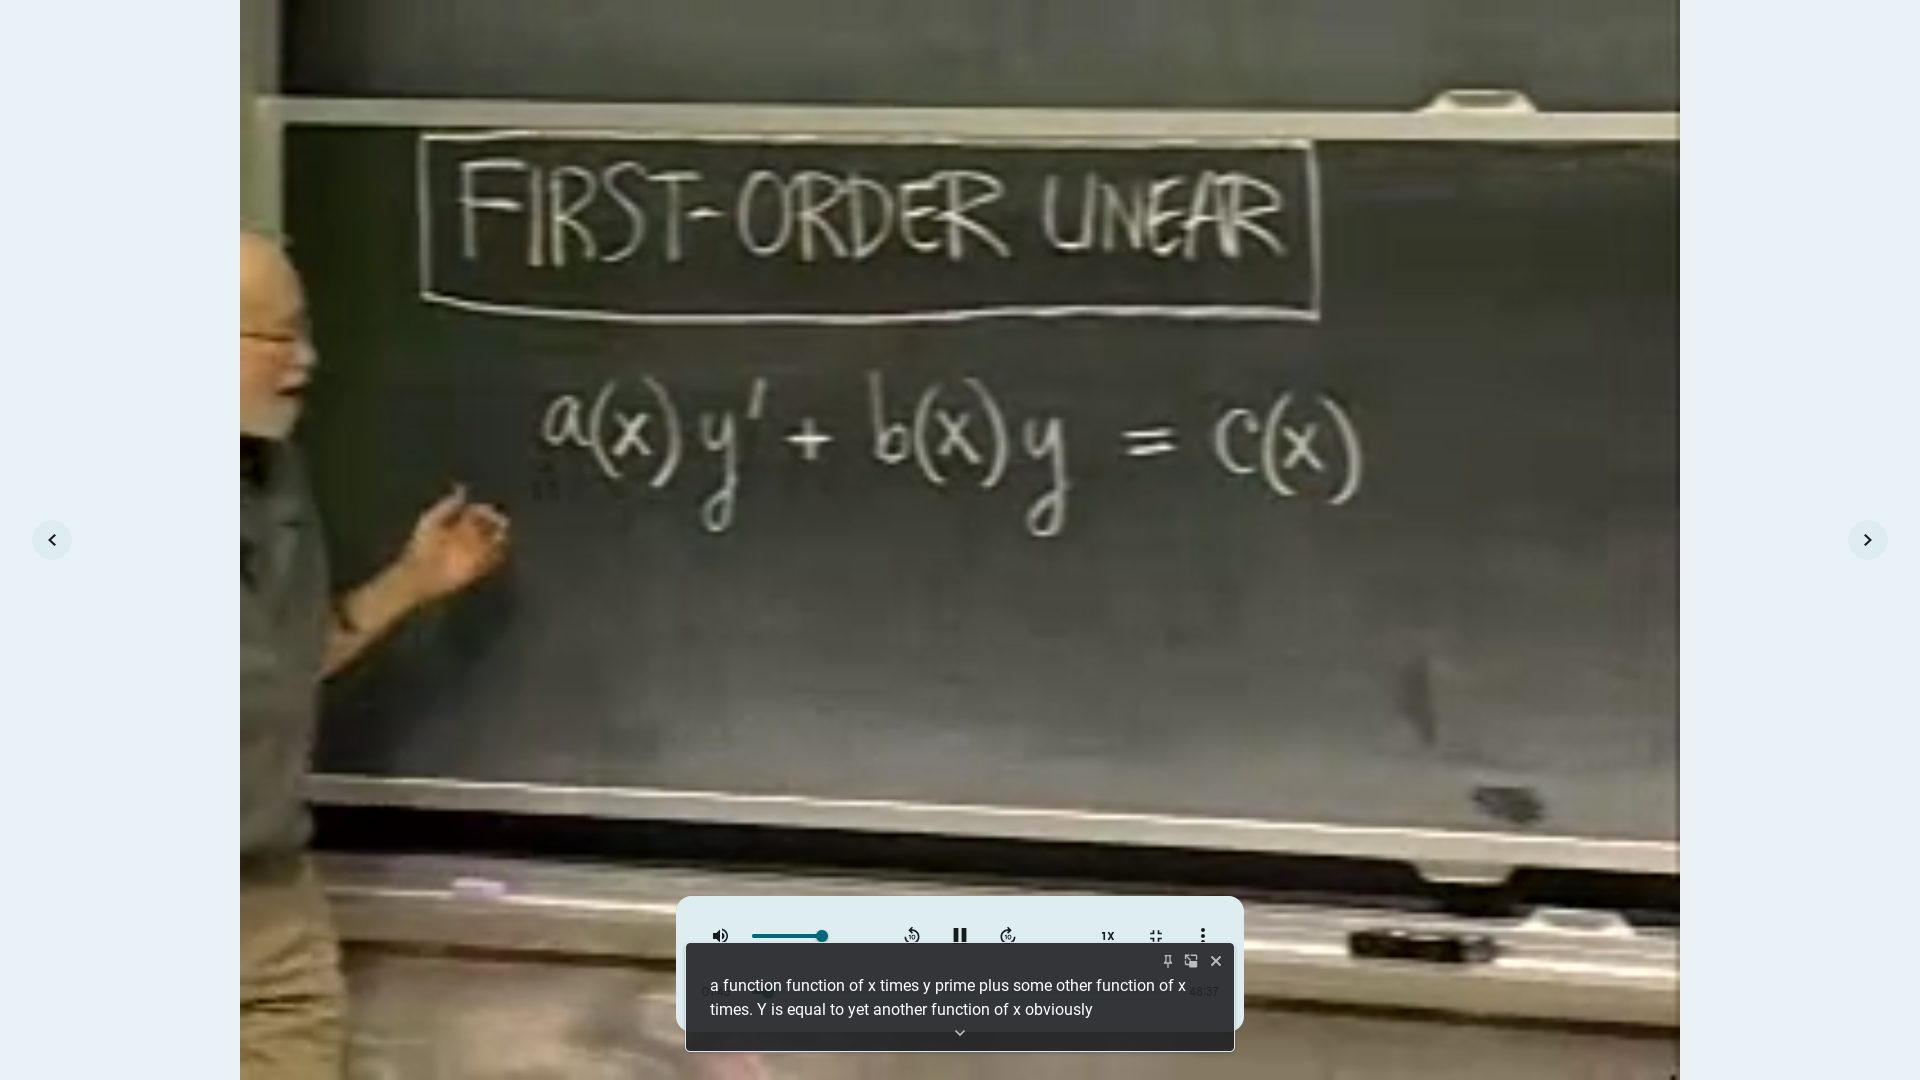 FIRST-ORDER LINEAR
a(x) y' + b(x) y = c(x)
10
10
1X
48:37
a function function of x times y prime plus some other function of x
times. Y is equal to yet another function of x obviously